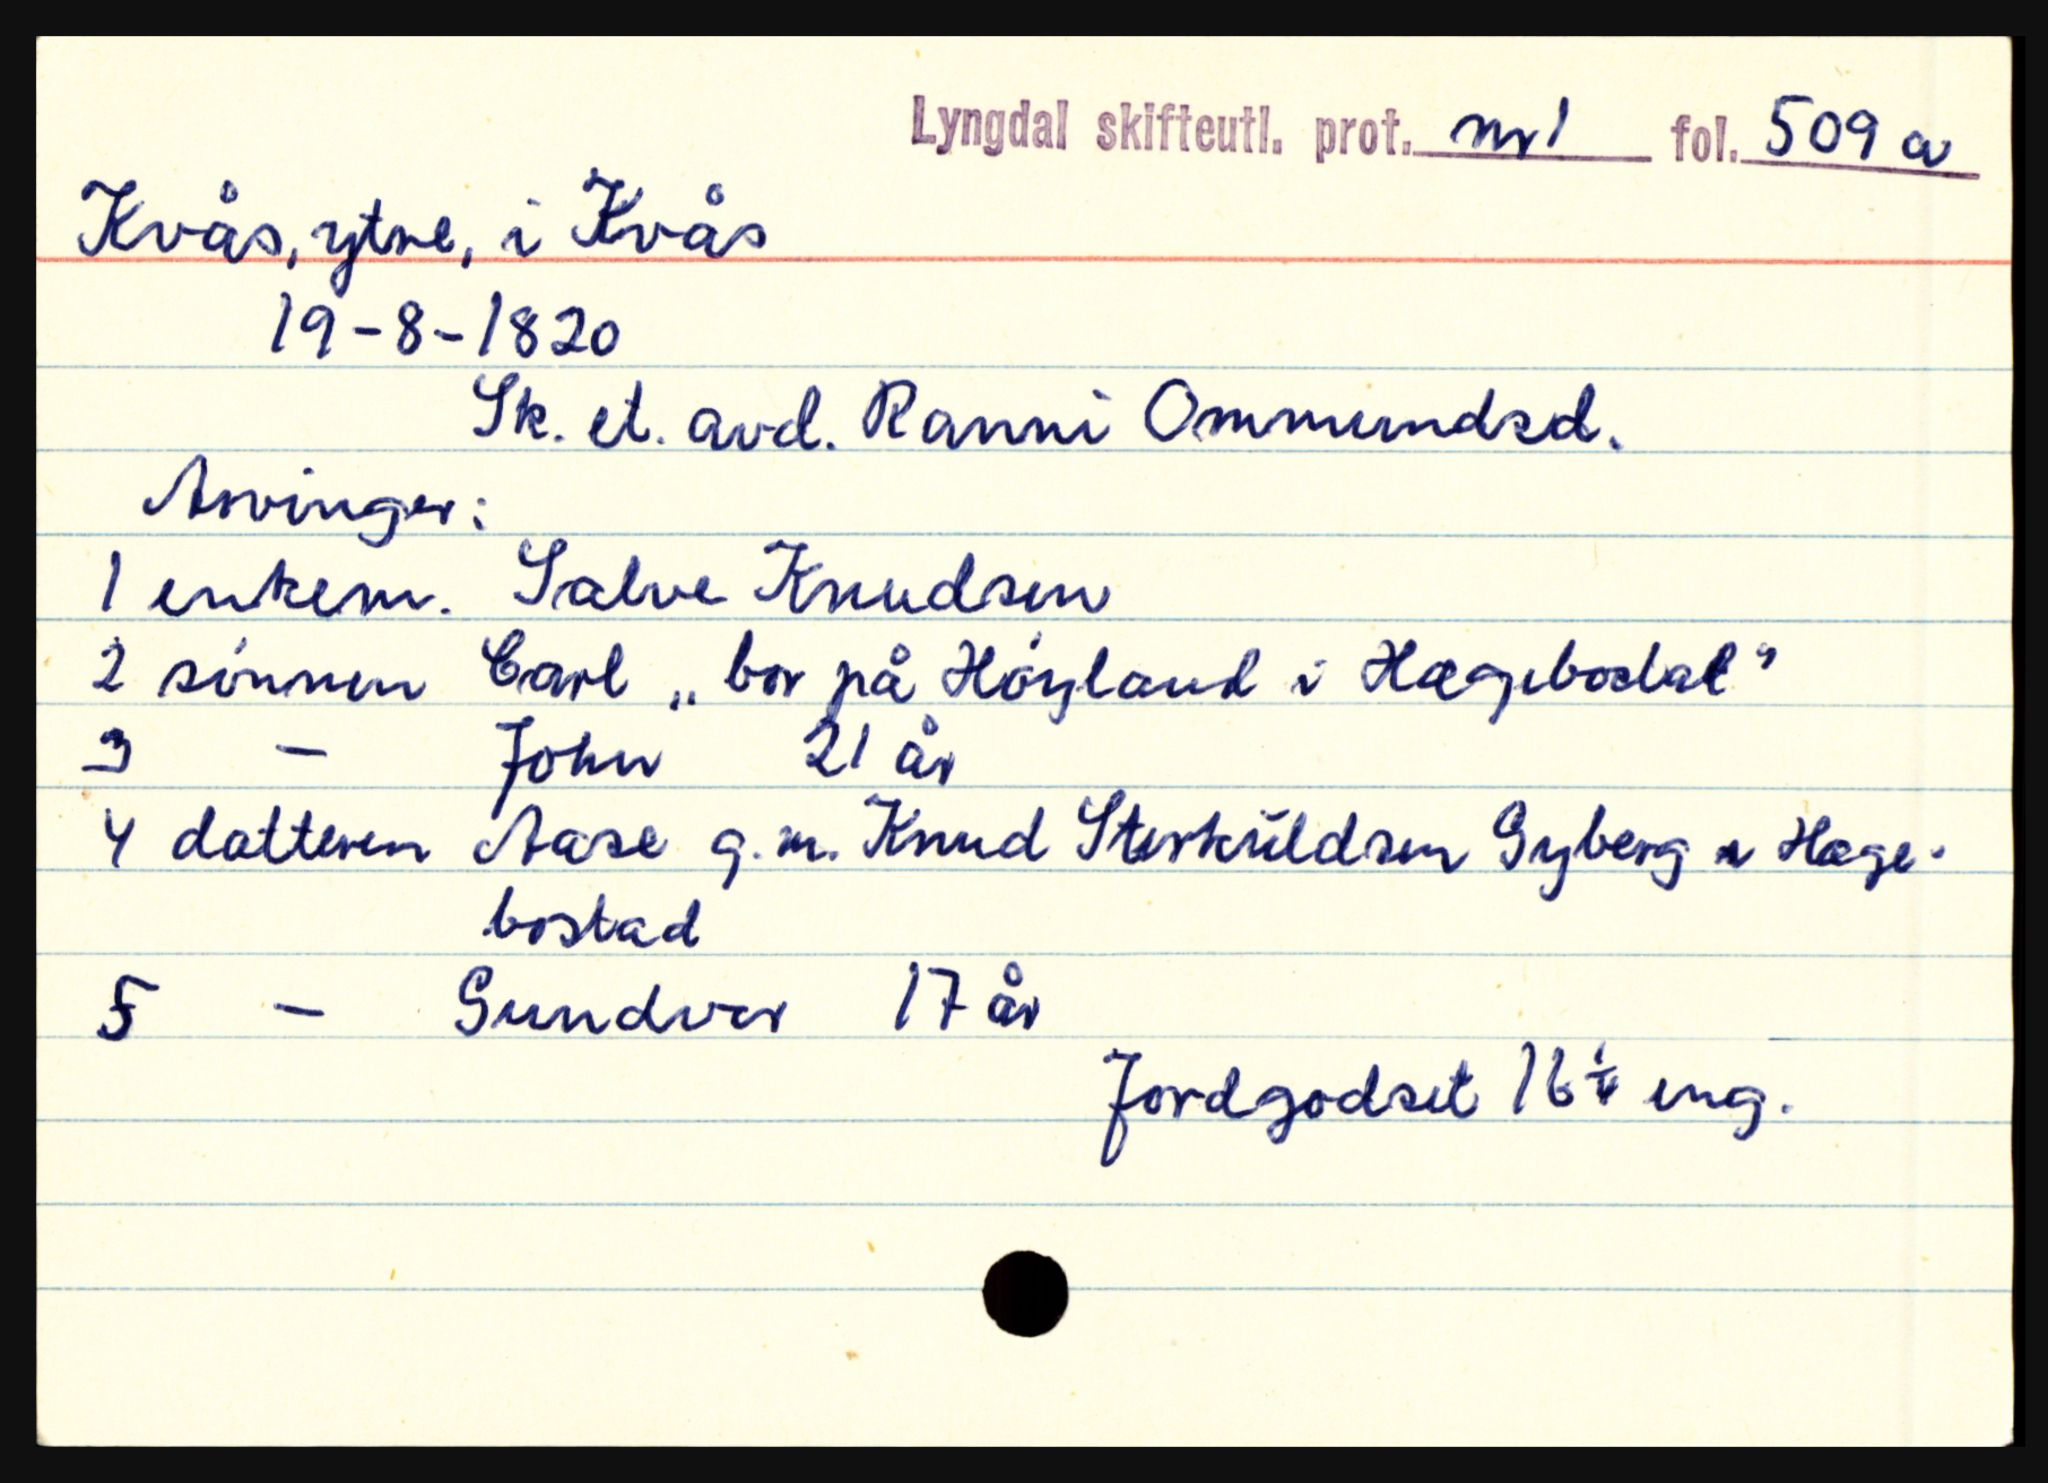 Lyngdal skifteutl. prot. nr 1 fol. 509 a
Kvås, ytre, i Kvås
19-8-1820
Sk. et. avd. Ranni Ommundsd.
Arvinger:
1 enkem. Salve Knudsen
2 sönnen Carl „bor på Höyland i Hægebostal"
3 - John 21 år
4 datteren Aase g.m. Knud Sterkuldsen Gyberg i Hæge-
bostad
5 - Gundvor 17 år
Jordgodset 16 eng.